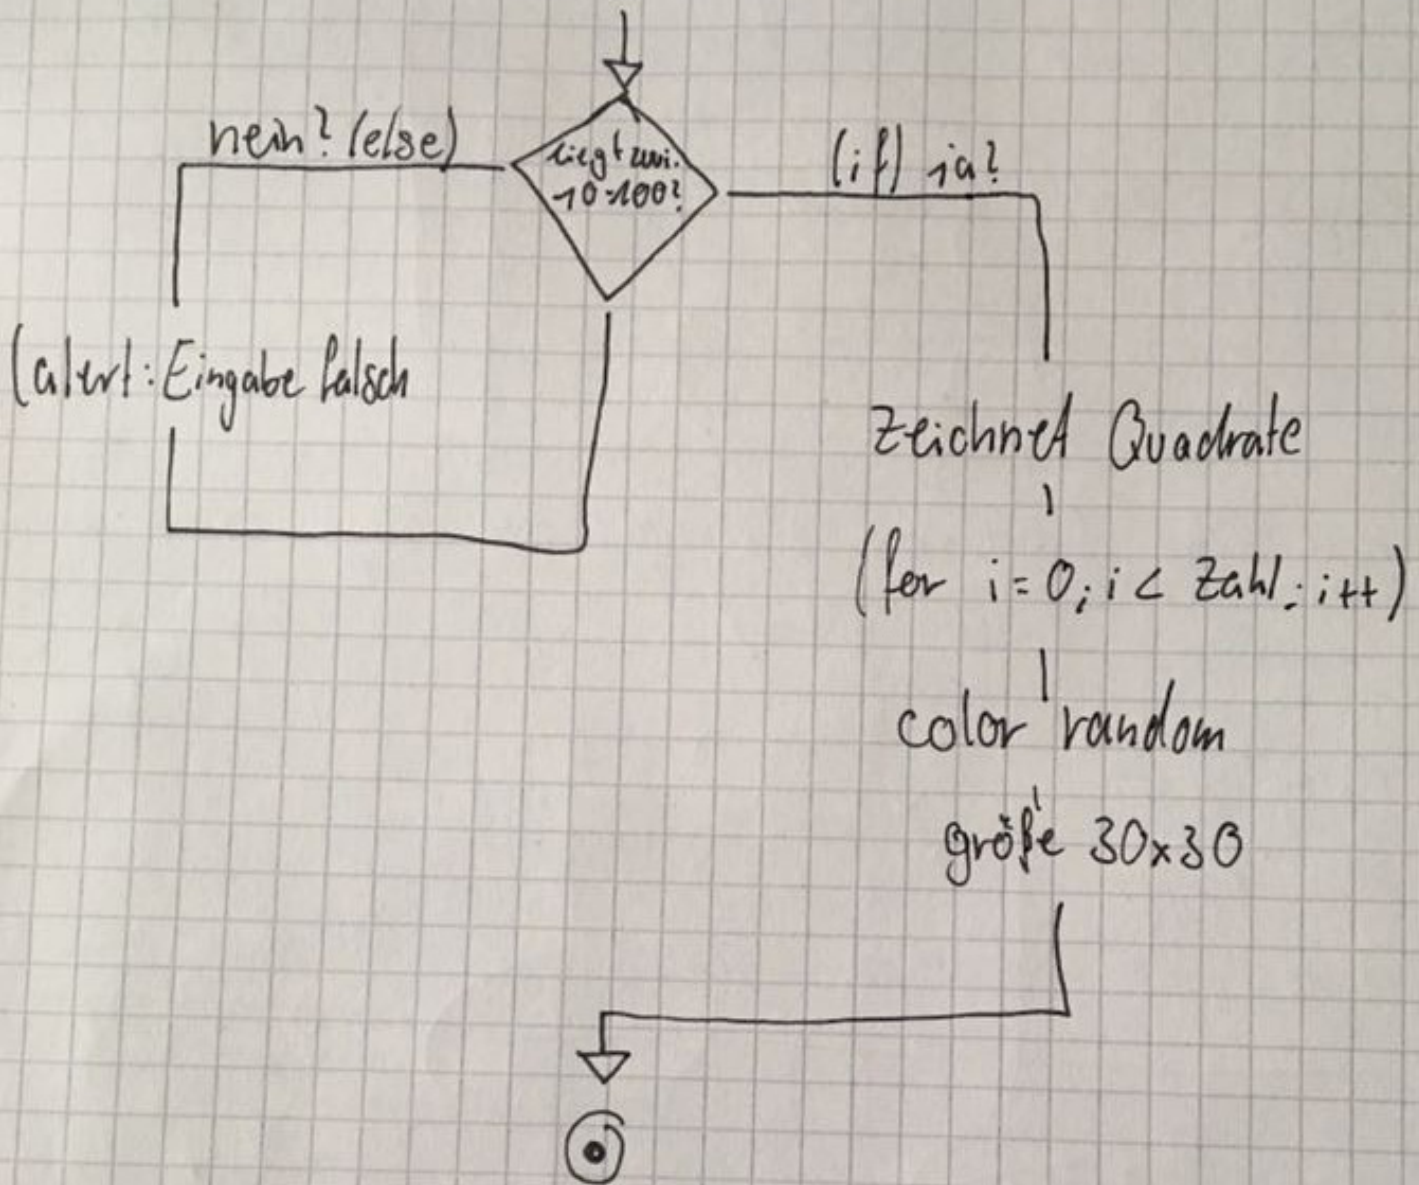 nein? (else)
liegt zwi.
10-100?
(if) ja?
(alert: Eingabe falsch
zeichnet Quadrate
(for i=0; i < Zahl; i++)
color random
größe 30x30